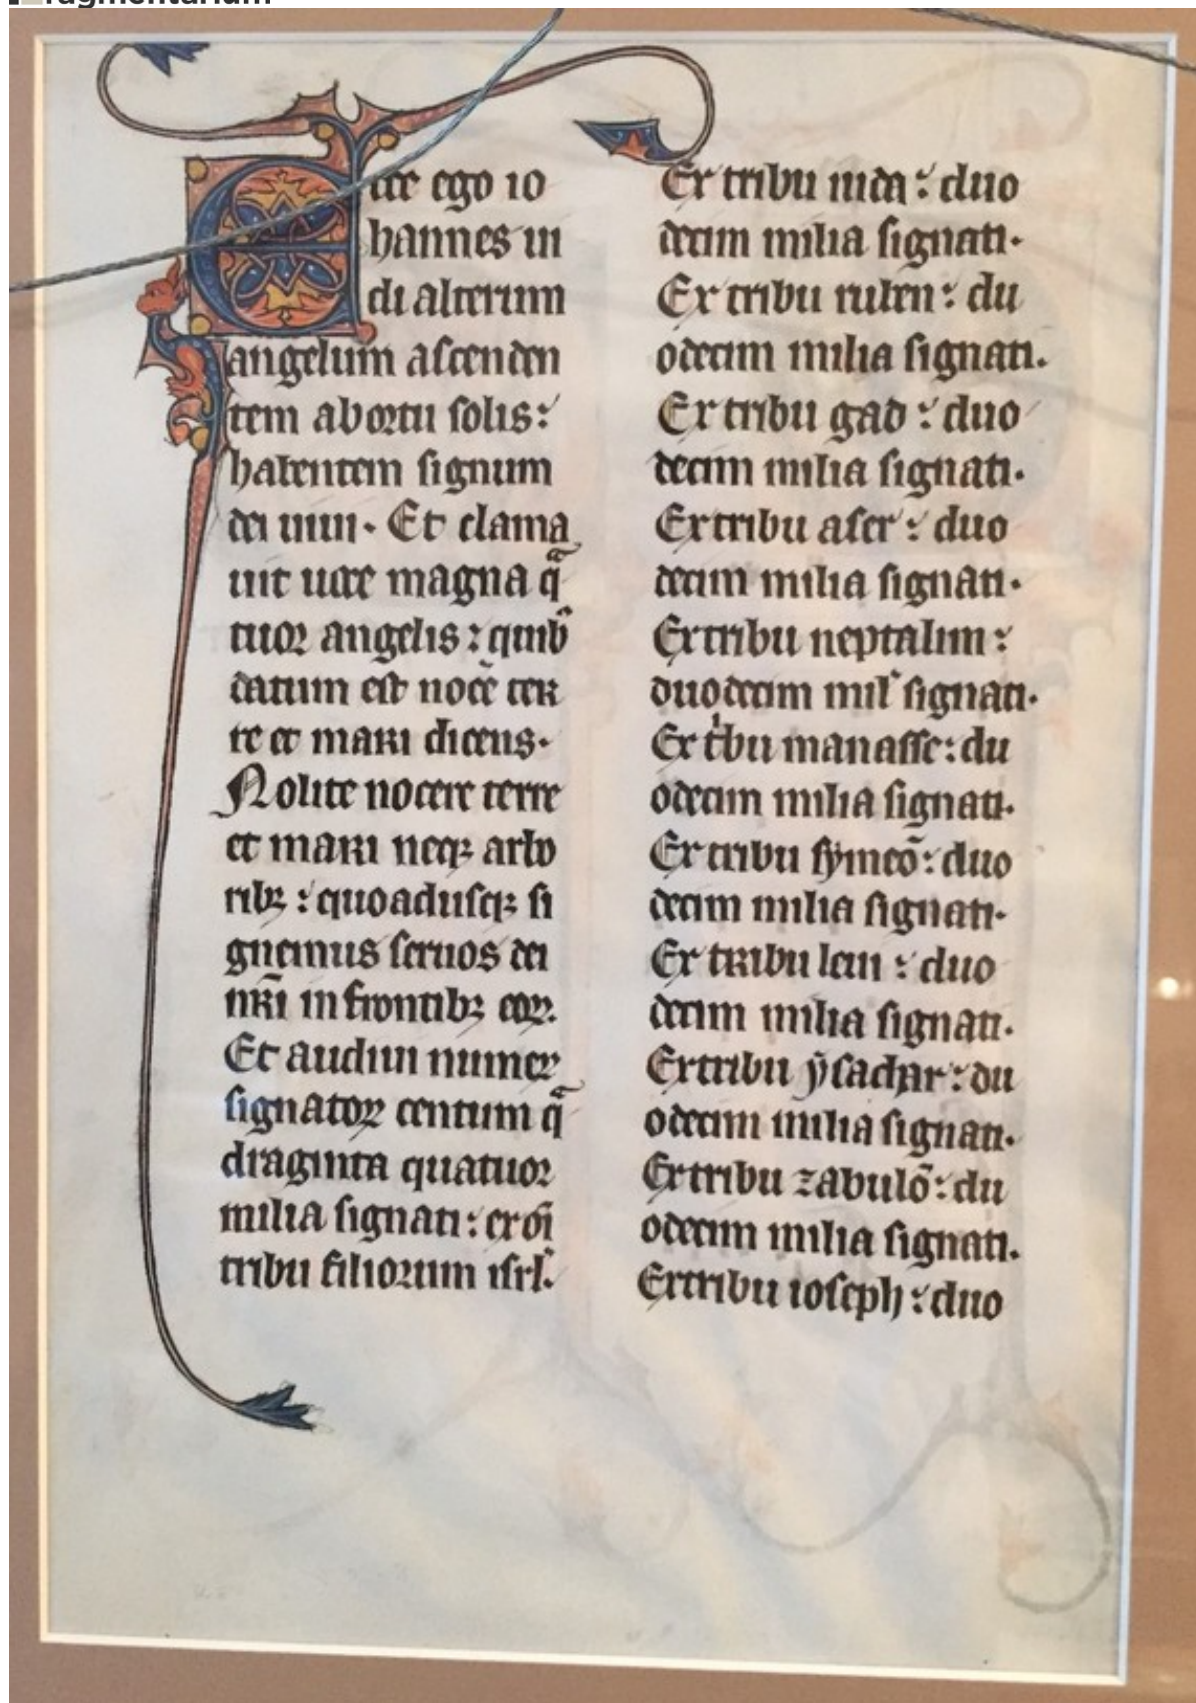 ragmentarium
Ecce ego io
hannes ui
di alterum
angelum ascenden
tem abortu solis:
habentem signum
dei uiui. Et clama
uit uoce magna qͣ
tuor angelis: quibꝰ
datum est nocẽ ter
re et mari dicens.
Nolite nocere terre
et mari neqꝫ arbo
ribꝫ: quoadusqꝫ si
gnemus seruos dei
nr̃i in frontibꝫ eoꝝ.
Et audiui numeꝝ
signatoꝝ centum qͣ
draginta quatuor
milia signati: ex oı̃
tribu filiorum isrl̃.
Ex tribu iuda: duo
decim milia signati.
Ex tribu ruben: du
odecim milia signati.
Ex tribu gad: duo
decim milia signati.
Ex tribu aser: duo
decim milia signati.
Ex tribu neptalim:
duodecim mil᷑ signati.
Ex tͥbu manasse: du
odecim milia signati.
Ex tribu symeõ: duo
decim milia signati.
Ex tribu leui: duo
decim milia signati.
Ex tribu ysachar: du
odecim milia signati.
Ex tribu zabulõ: du
odecim milia signati.
Ex tribu ioseph: duo